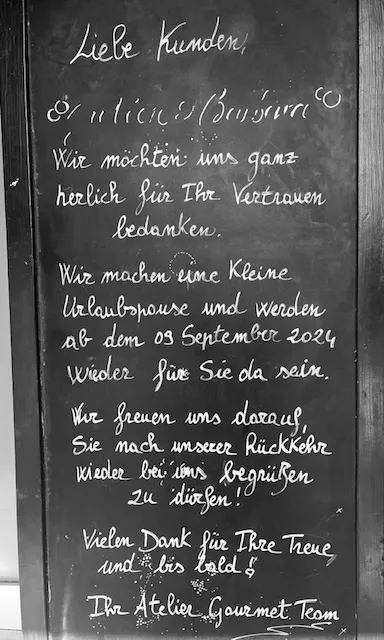 Liebe Kunden,
& Barbara
Wir möchten uns ganz
herlich für Ihr Vertrauen
bedanken.
Wir machen eine Kleine
Urlaubspause und werden
ab dem 09 September 2024
wieder für Sie da sein.
Wir freuen uns darauf,
Sie nach unserer Rückkehr
wieder bei uns begrüßen
zu dürfen!
Vielen Dank für Ihre Treue
und bis bald!
Ihr Atelier Gourmet Team